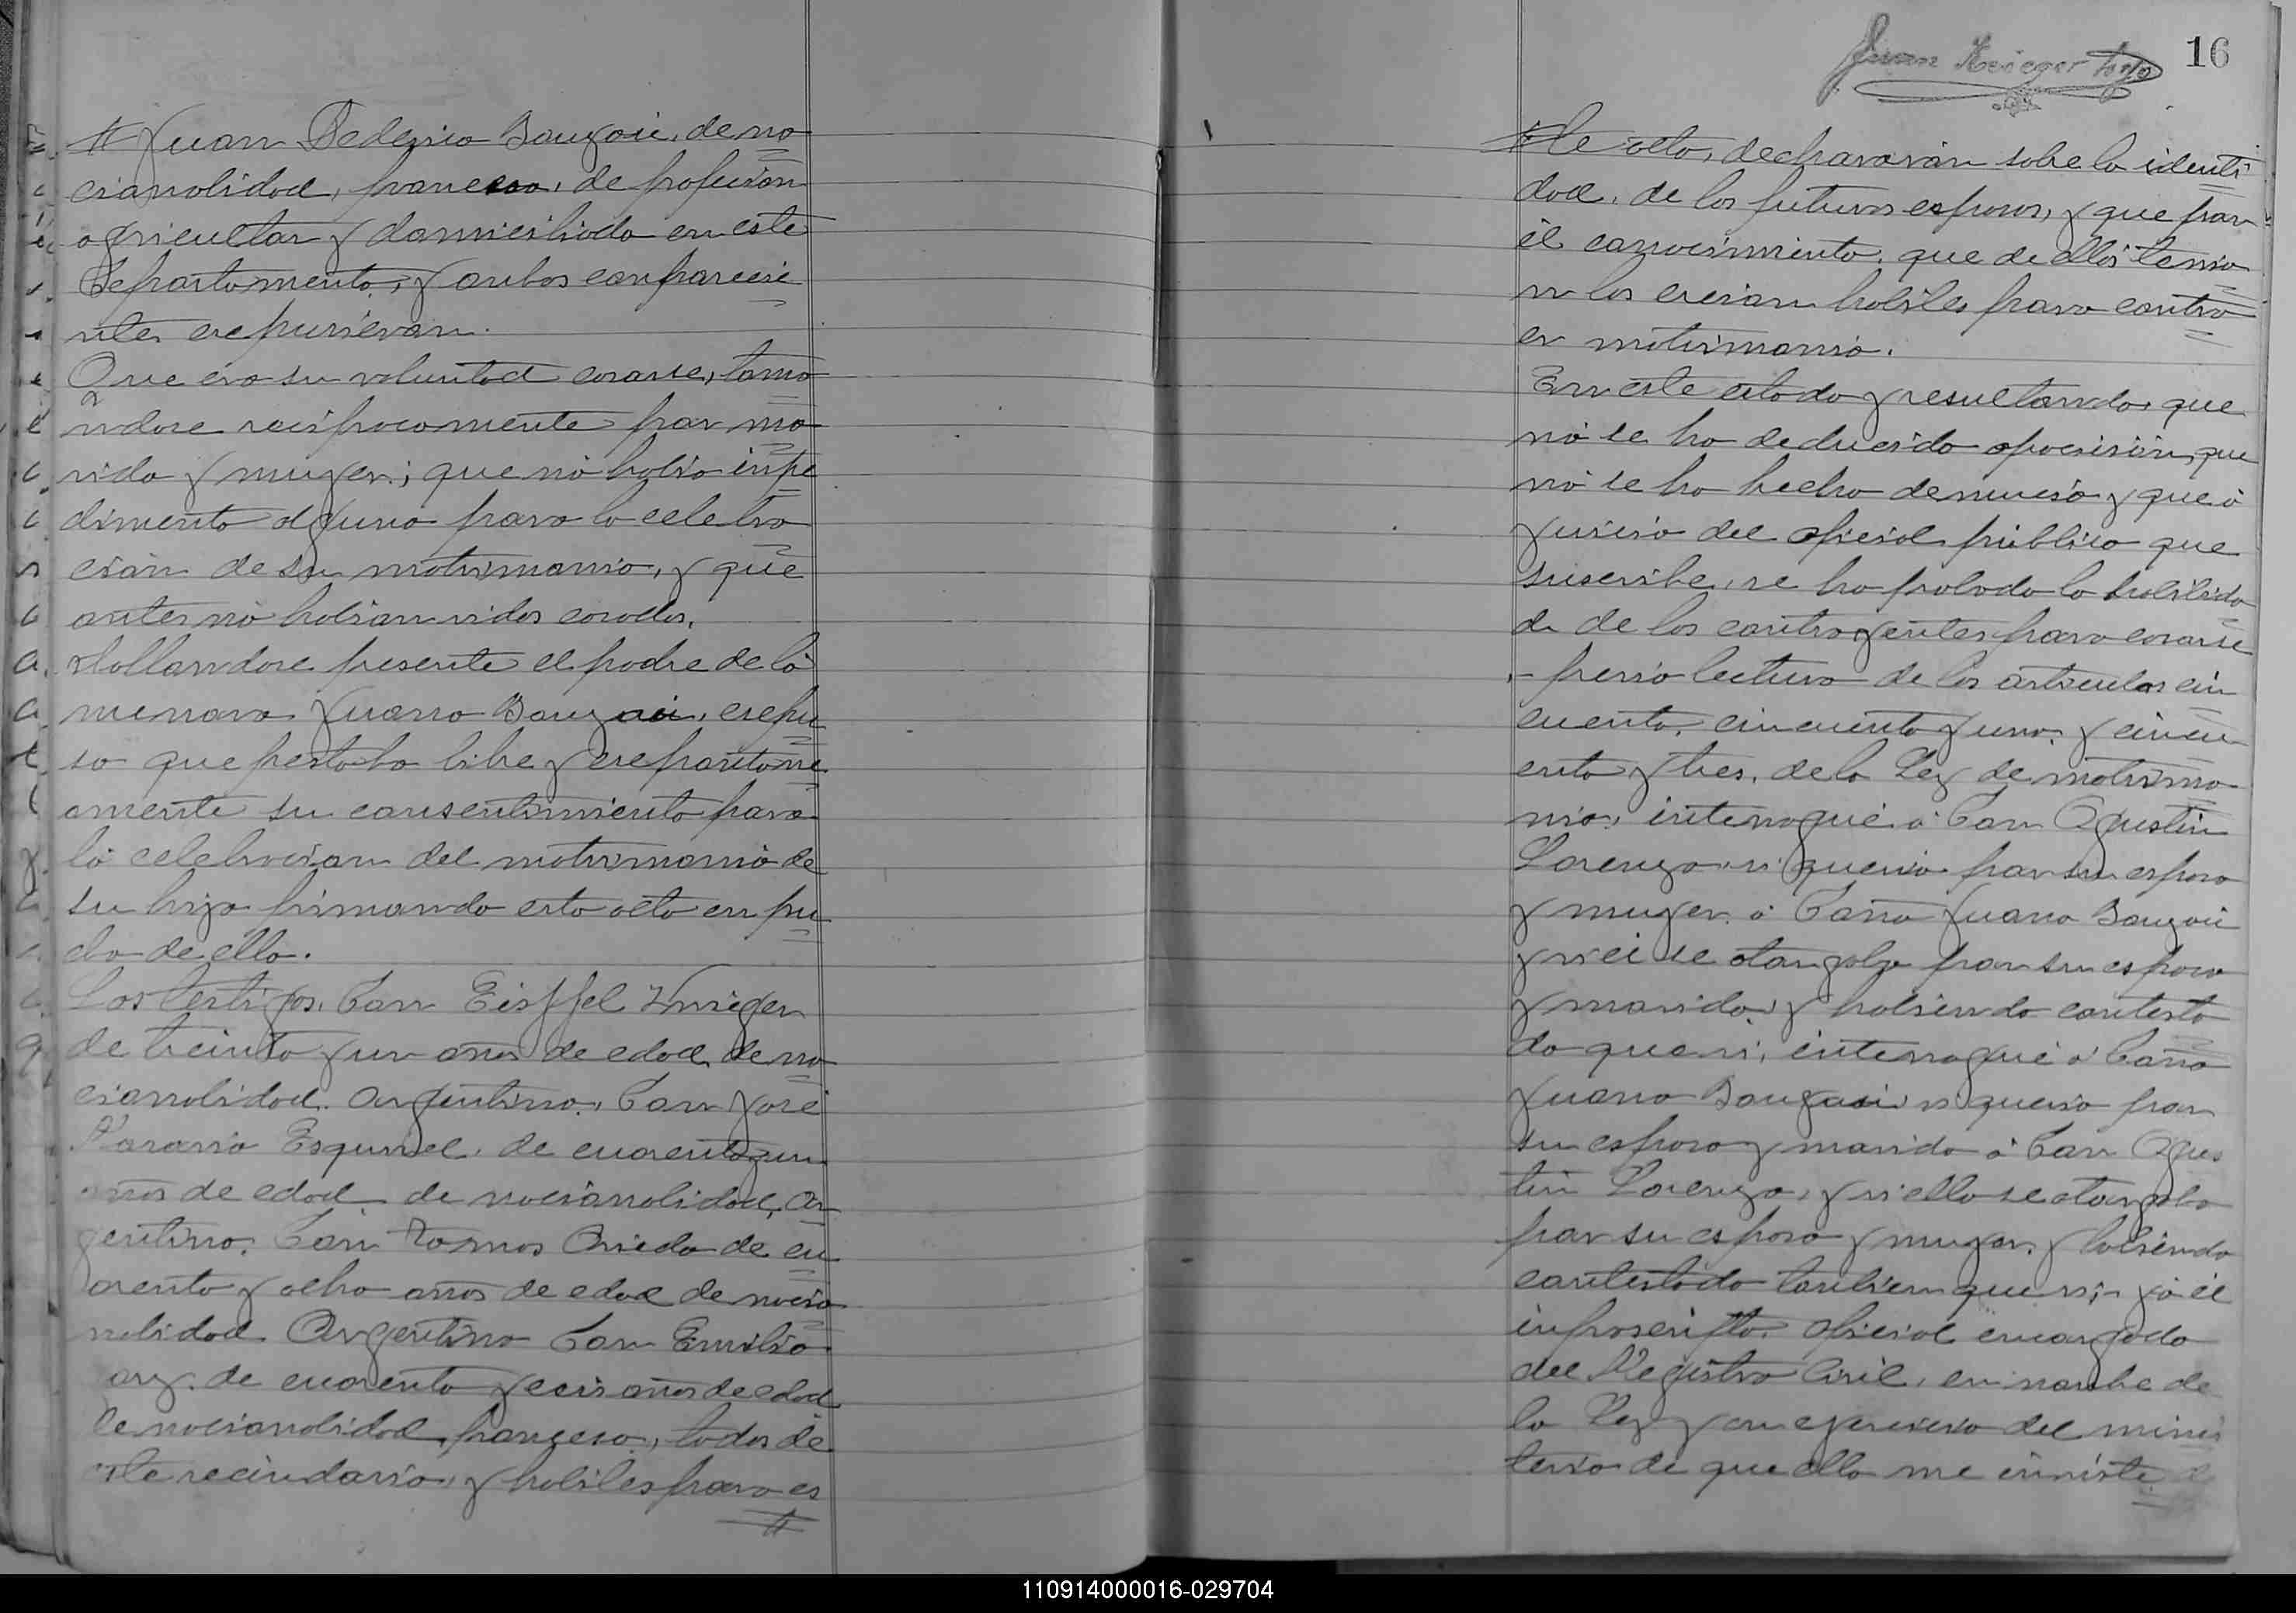 Juan Federico Bauzaii, de na
cionalidad, francesa, de profesion
agricultor y domiciliado en este
Departamento, y ambos comparecie
ntes expusieran.
Que era su voluntad casarse, toma
ndose reciprocamente por ma
rido y muger; que nó habia inpe
dimento alguno para la celebra
cion de su matrimonio, y que
antes nó habian sidos casados.
Hallandose presente el padre de lá
menora Juana Bauzaii, expu
so que prestaba libre y
amente su consentimiento para
lá celebracion del matrimonio de
su hija firmando esta acta en pu
eba de ella.
Los testigos, Don
de treinta y un años de edad, de na
cionalidad. Argentina, Don José
Nazario Esquivel, de cuarenta y un
años de edad de nacionalidad, Ar
gentina. Don Tomas Oviedo de cu
arenta y ocho años de edad de nacio
nalidad Argentina Don Emilio
de cuarenta y ceis años de edad
de nacionalidad, francesa, todos de
este vecindario, y habiles para es
Juan Krieger 16
te acto, declararán sobre la identi
dad, de los futuros esposos, y que por
el conocimiento, que de ellos tenia
n los creian habiles para contra
er matrimonio.
En este estado y resultando, que
nó se ha deducido opocisión, que
nó se ha hecho denuncia y que á
juicio del oficial público que
suscribe, se ha probado la habilida
d de los contrayentes para casarse
previa lectura de los articulos cin
cuenta, cincuenta y uno, y cincu
enta y tres, de la Ley de matrimo
nio, interrogué á Don Agustin
Lorenzo, si queria por su esposa
y muger á Doña Juana Bauzaii
y si él se otorgaba por su esposo
y marido, y habiendo contesta
do que si, interrogué á Doña
Juana Bauzaii si queria por
su esposo y marido á Don Agus
tin Lorenzo, y si ella se otorgaba
por su esposa y muger, y habiendo
contestado tanbien que si, yó el
infrascripto, oficial encargado
del Registro Civil, en nonbre de
la Ley y en ejercicio del minis
terio de que ella me inviste
110914000016-029704